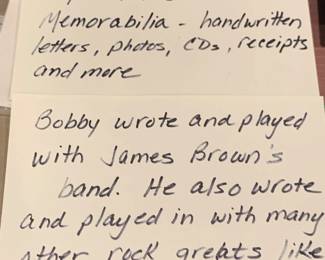 Memorabilia - handwritten
letters, photos, CDs, receipts
and more
Bobby wrote and played
with James Brown's
band. He also wrote
and played in with many
other rock greats like